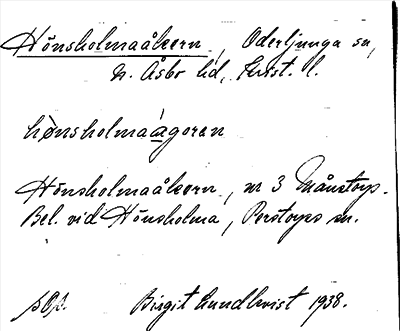 Hönsholmaåkern, Oderljunga sn,
N. Åsbo hd, Krist. l.
hønsholmaágoran
Hönsholmaåkern, nr 3 Månstorp.
Bel. vid Hönsholma, Perstorps sn.
Birgit Lundkvist 1938.